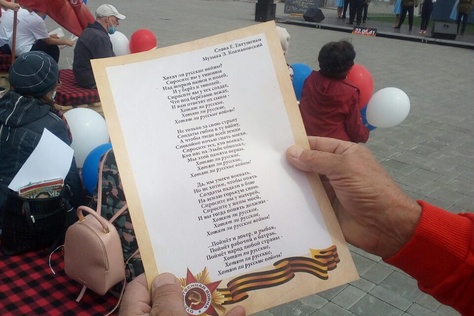 Слова Е. Евтушенко
Музыка Э. Колмановский
Хотят ли русские войны?
Спросите вы у тишины
Над ширью пашен и полей
И у берёз и тополей.
Спросите вы у тех солдат,
Что под берёзами лежат,
И вам ответят их сыны -
Хотят ли русские,
Хотят ли русские войны!
Не только за свою страну
Солдаты гибли в ту войну,
А чтобы люди всей земли
Спокойно ночью спать могли.
Спросите тех, кто воевал,
Кто нас на Эльбе обнимал,
Мы этой памяти верны.
Хотят ли русские,
Хотят ли русские войны!
Да, мы умеем воевать,
Но не хотим, чтобы опять
Солдаты падали в бою
На землю горькую свою.
Спросите вы у матерей,
Спросите у жены моей,
И вы тогда понять должны
Хотят ли русские,
Хотят ли русские войны.
Поймёт и докер, и рыбак,
Поймёт рабочий и батрак,
Поймёт народ любой страны -
Хотят ли русские,
Хотят ли русские войны!